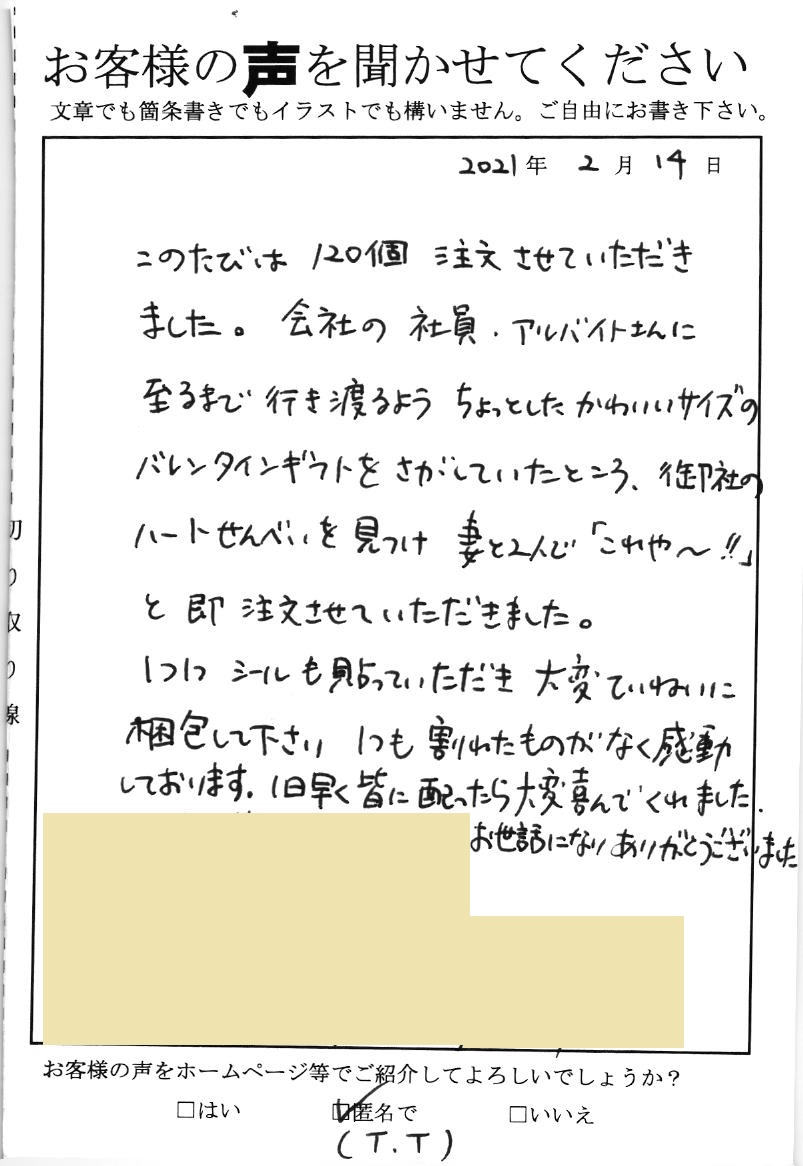 お客様の声を聞かせてください
文章でも箇条書きでもイラストでも構いません。ご自由にお書き下さい。
2021年 2月 14日
このたびは 120個 注文させていただき
ました。会社の 社員・アルバイトさんに
至るまで 行き渡るよう ちょっとした かわいいサイズの
バレンタインギフトを さがしていたところ、御社の
ハートせんべいを 見つけ 妻と2人で「これや〜!!」
と 即 注文させていただきました。
1つ1つ シールも貼っていただき 大変ていねいに
梱包して下さい 1つも 割れたものがなく感動
しております。1日早く皆に配ったら大変喜んでくれました.
お世話になりありがとうございました
切り取り線
お客様の声をホームページ等でご紹介してよろしいでしょうか?
□はい □匿名で □いいえ
(T.T)